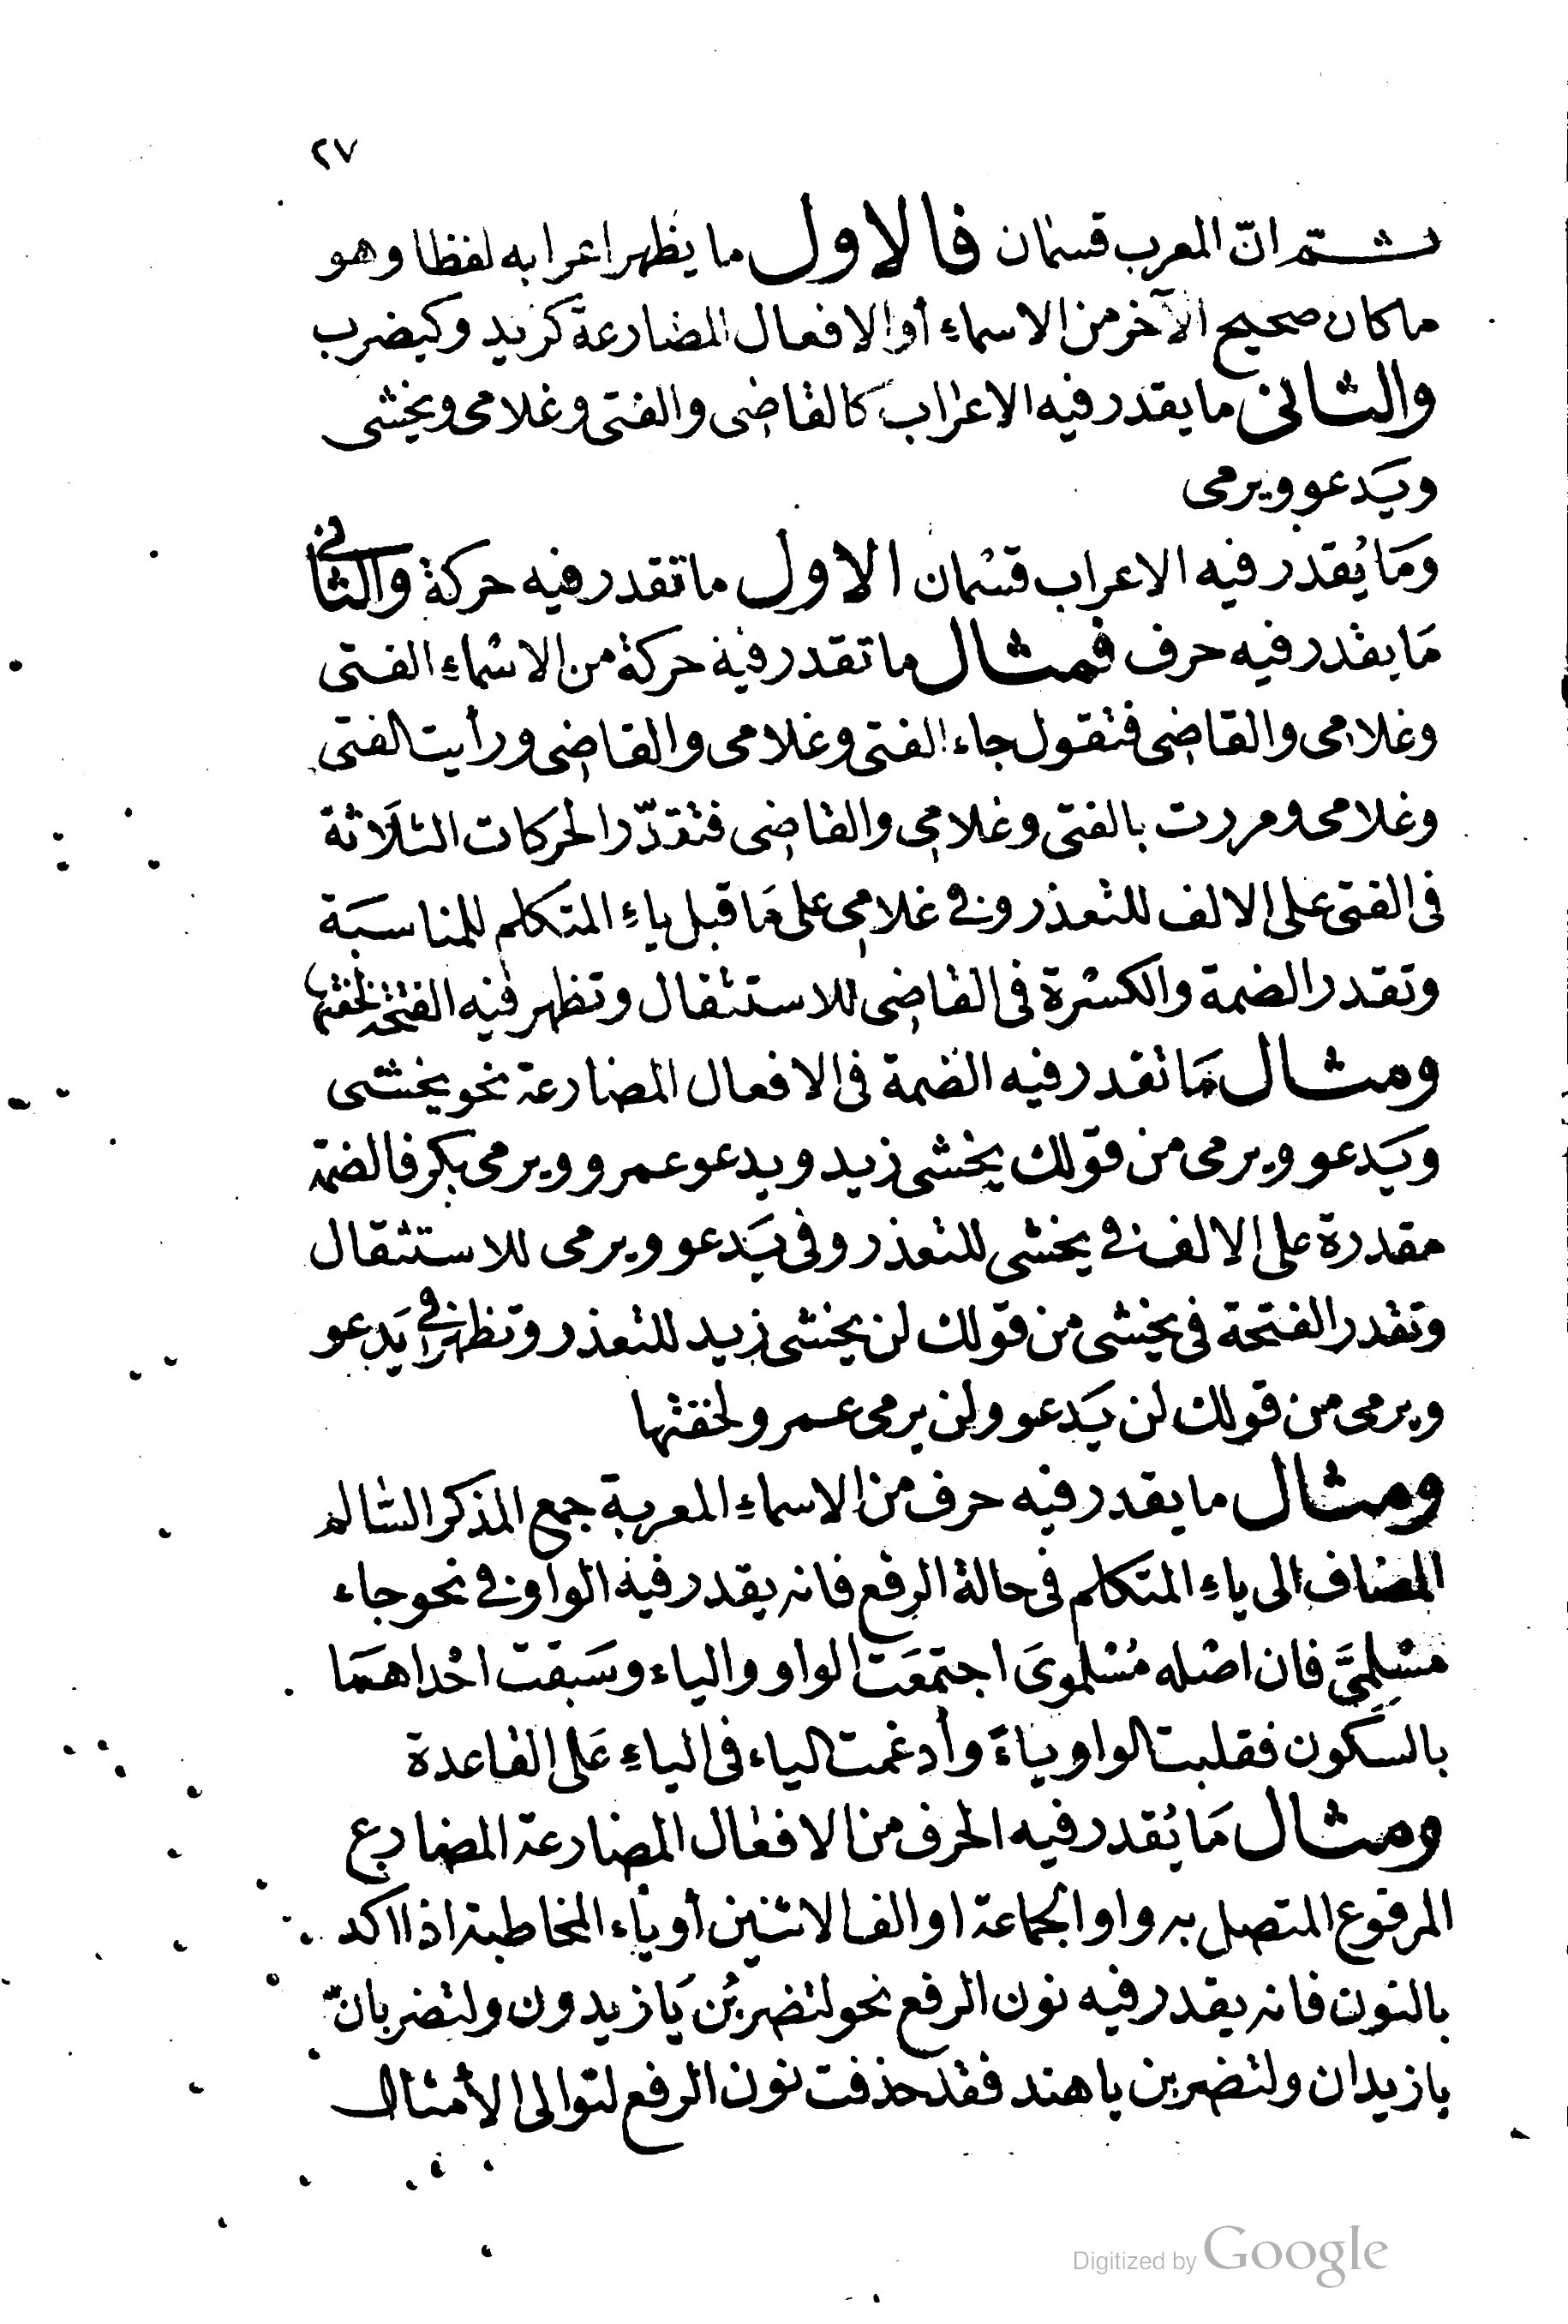 ٢٧
ثم انّ المعرب قسمان فالاول ما يظهر اعرابه لفظا وهو
ما كان صحيح الآخر من الاسماءِ أو الافعال المضارعة كزيد وكيضرب
والثانى ما يقدر فيه الاعراب كالقاضى والفتى وغلامى ويخشى
ويَدعو ويرمى
وَمَا يُقدر فيه الاعراب قسْمان الاول ما تقدر فيه حركة والثانى
مَا يقدر فيه حرف فمثال ما تقدر فيه حركة من الاسْماءِ الفتى
وغلامى والقاضى فتقول جاء الفتى وغلامى والقاضى ورأيت الفتى
وغلامى ومررت بالفتى وغلامى والقاضى فتقدّر الحركات الثلَاثة
فى الفتى على الالف للتعذر وفى غلامى على مَا قبل ياءِ المتكلم للمناسبَة
وتقدر الضمة والكسْرة فى القاضى للاستثقال وتظهر فيه الفتحة لخفتها
ومثال مَا تقدر فيه الضمة فى الافعال المضارعة نحو يخشى
ويَدعو ويرمى من قولك يخشى زيد ويدعو عمرو ويرمى بكر فالضمة
مقدرة على الالف فى يخشى للتعذر وفى يَدعو ويرمى للاستثقال
وتقدر الفتحة فى يخشى من قولك لن يخشى زيد للتعذر وتظهر فى يَدعو
ويرمى من قولك لن يَدعو ولن يرمى عمرو لخفتها
ومثال ما يقدر فيه حرف من الاسماءِ المعربة جمع المذكر السَّالم
المضاف الى ياءِ المتكلم فى حالة الرفع فانه يقدر فيه الواو فى نحو جاء
مسْلِمِىَّ فان اصْله مُسْلموىَ اجتمعَت الواو والياء وسَبقت احْداهمَا
بالسَّكون فقلبت الواو ياءً وأدغمت الياء فى الياءِ عَلى القاعدة
ومثال مَا يُقدر فيه الحرف من الافعال المضارعة المضارع
المرفوع المتصل به واو الجماعة او الف الاثنين أو ياء المخاطبة اذا اكد
بالنون فانه يقدر فيه نون الرفع نحو لتضربُن يَا زيدون ولتضربانّ
يا زيدان ولتضربن يا هند فقد حذفت نون الرفع لتوالى الأمثال
Digitized by Google